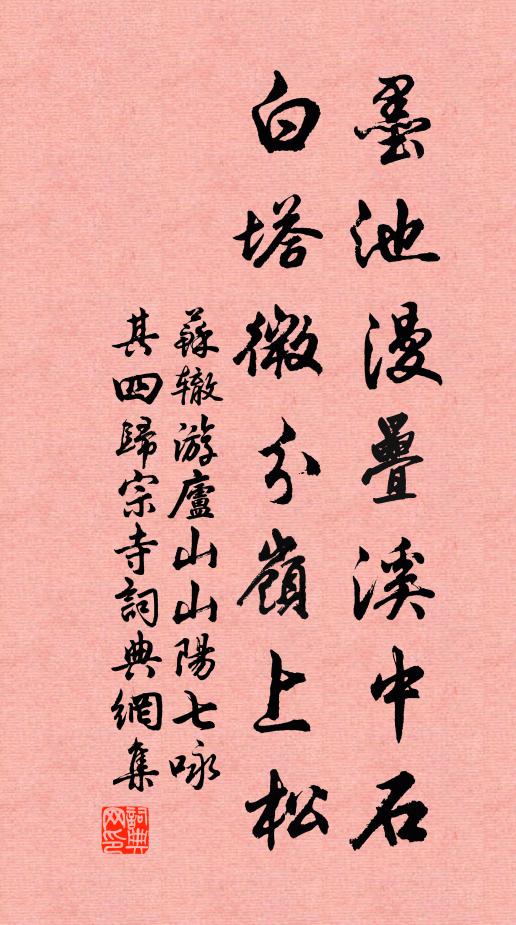 墨池漫疊溪中石
白塔微分嶺上松
蘇辙游廬山山陽七咏
其四歸宗寺詞典網集
詞典网印